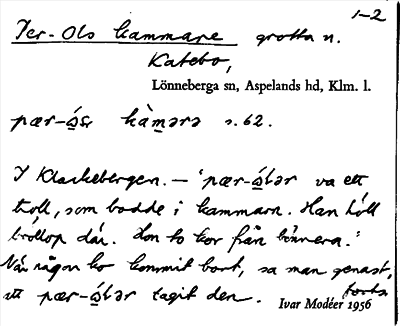 1-2
Per-Ols kammare grotta n.
Katebo,
Lönneberga sn, Aspelands hd, Klm. l.
pær-ωs̱ kàmərə s. 62.
I Klackebergen. — "pær-ωlər va ett
troll, som bodde i kammarn. Han höll
bröllop där. Hon to kor från bönnera."
När någon ko kommit bort, sa man genast,
att pær-ωlər tagit den. forts.
Ivar Modéer 1956